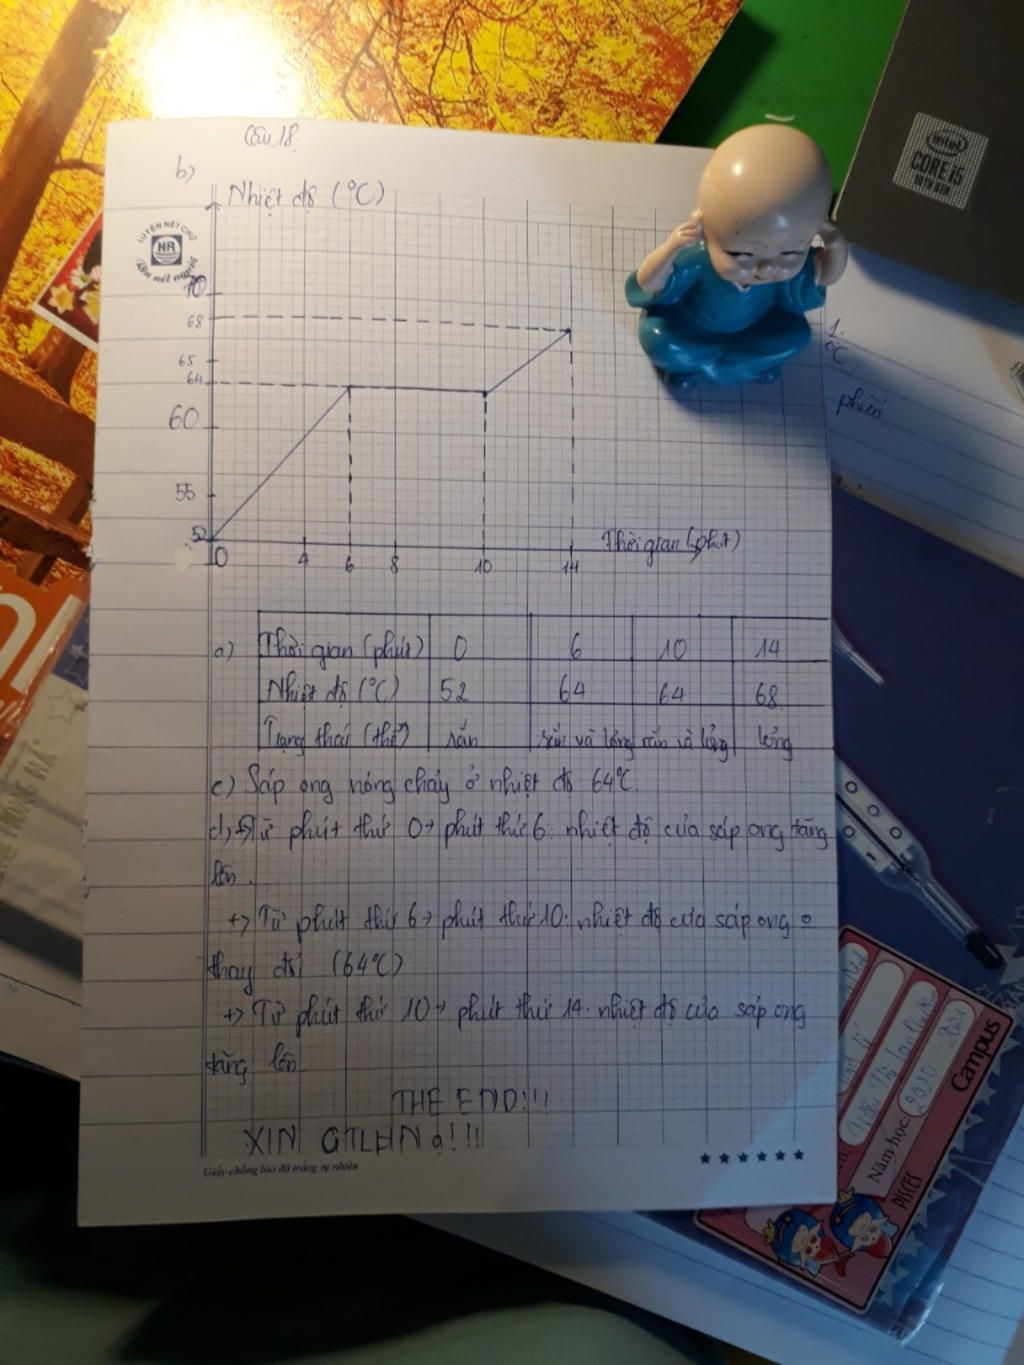 Câu 18.
b)
Nhiệt độ (°C)
LUYỆN NÉT CHỮ
HR
Rèn nết người
70
68
65
64
60
55
52
0 4 6 8 10 14
Thời gian (phút)
a) Thời gian (phút) 0 6 10 14
Nhiệt độ (°C) 52 64 64 68
Trạng thái (thể) rắn rắn và lỏng rắn và lỏng lỏng
c) Sáp ong nóng chảy ở nhiệt độ 64°C.
d) +) Từ phút thứ 0→ phút thứ 6: nhiệt độ của sáp ong tăng
lên.
+) Từ phút thứ 6→ phút thứ 10: nhiệt độ của sáp ong o
thay đổi (64°C)
+) Từ phút thứ 10→ phút thứ 14: nhiệt độ của sáp ong
tăng lên.
THE END!!!
XIN CTLHN ạ!!!
Giấy chống lóa độ trắng tự nhiên
intel
CORE i5
10TH GEN
1.
°C
phiếu
Campus
Năm học: 2020 2021
PISCES